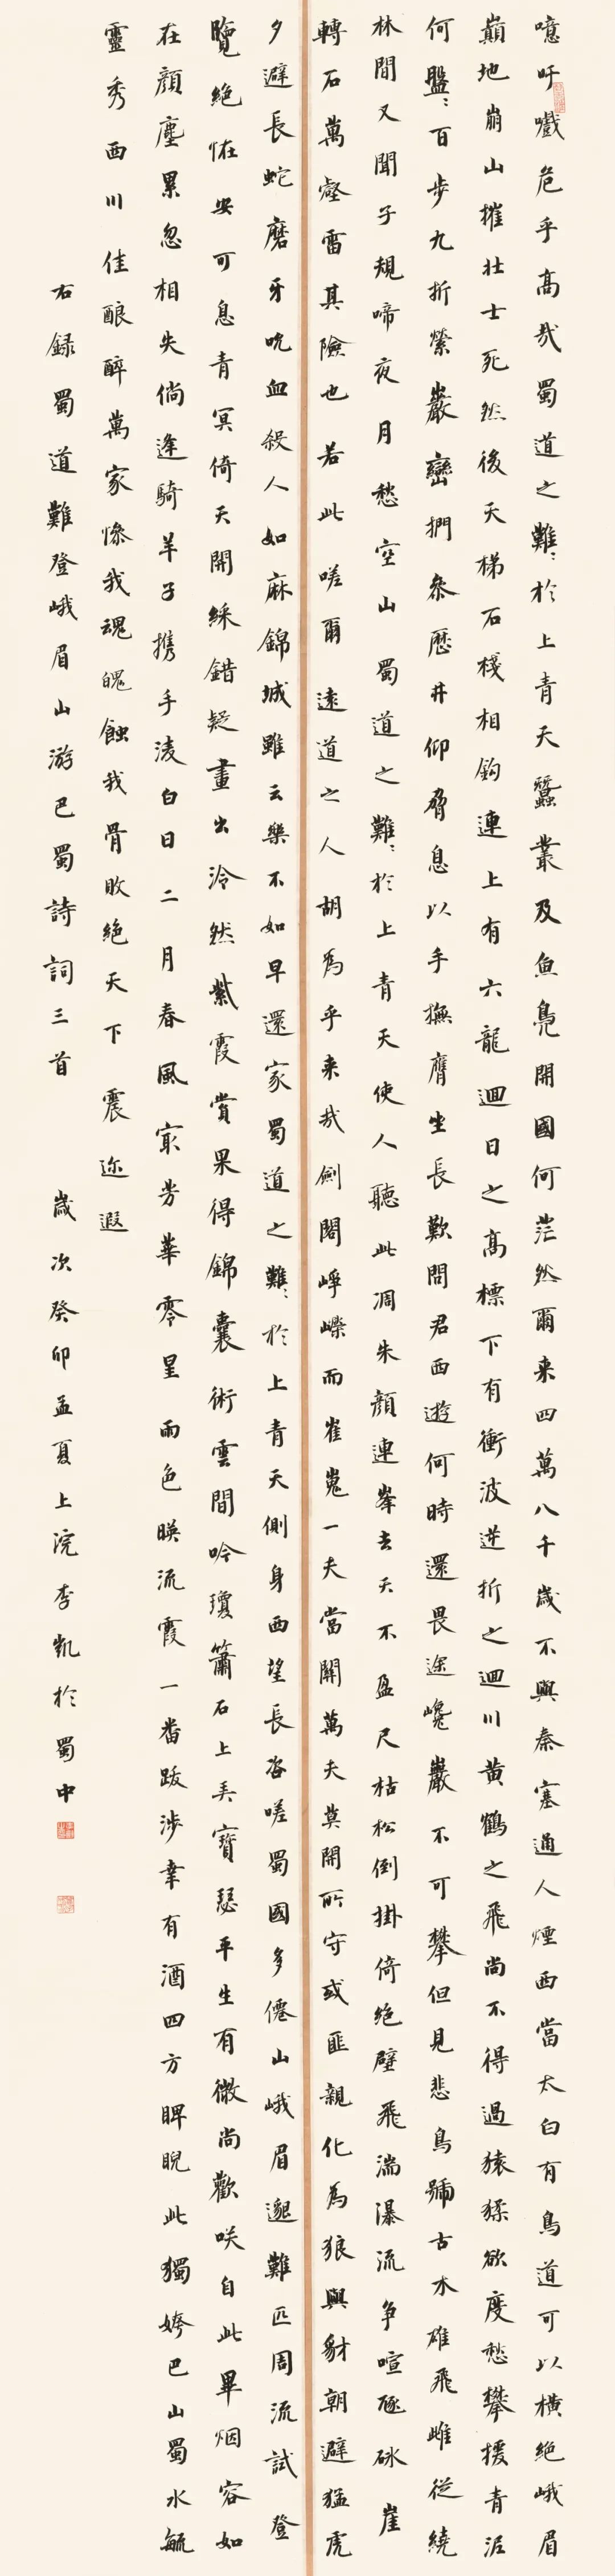 噫吁嚱危乎高哉蜀道之難〻於上青天蠶叢及魚鳧開國何茫然爾来四萬八千歲不與秦塞通人煙西當太白有鳥道可以橫絕峨眉
巔地崩山摧壯士死然後天梯石棧相鉤連上有六龍迴日之高標下有衝波逆折之迴川黃鶴之飛尚不得過猿猱欲度愁攀援青泥
何盤〻百步九折縈巖巒捫參歷井仰脅息以手撫膺坐長歎問君西遊何時還畏途巉巖不可攀但見悲鳥號古木雄飛雌從繞
林間又聞子規啼夜月愁空山蜀道之難〻於上青天使人聽此凋朱顏連峯去天不盈尺枯松倒掛倚絕壁飛湍瀑流争喧豗砯崖
轉石萬壑雷其險也若此嗟爾遠道之人胡為乎来哉劍閣崢嶸而崔嵬一夫當關萬夫莫開所守或匪親化為狼與豺朝避猛虎
夕避長蛇磨牙吮血殺人如麻錦城雖云樂不如早還家蜀道之難〻於上青天側身西望長咨嗟蜀國多僊山峨眉邈難匹周流試登
覽絕恠安可息青冥倚天開綵錯疑畫出泠然紫霞賞果得錦囊術雲間吟瓊簫石上弄寶瑟平生有微尚歡咲自此畢烟容如
在顏塵累忽相失倘逢騎羊子携手淩白日二月春風寂芳華零星雨色暎流霞一番跋涉幸有酒四方睥睨此獨姱巴山蜀水毓
靈秀西川佳釀醉萬家惨我魂魄蝕我骨敢絕天下震迩遐
右録蜀道難登峨眉山游巴蜀詩詞三首 歲次癸卯孟夏上浣李凱於蜀中